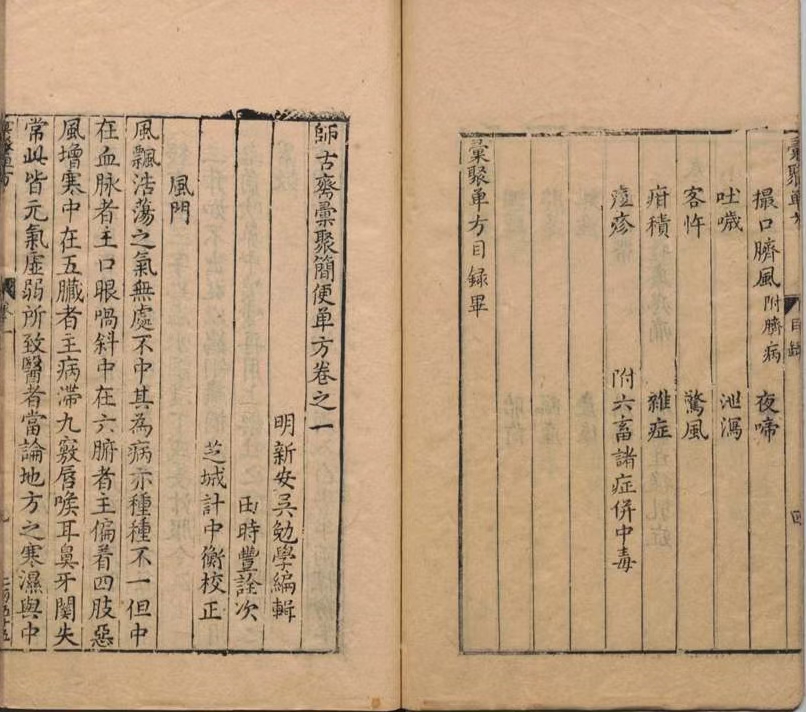 目録
撮口臍風附臍病　夜啼
吐噦　泄瀉
客忤　驚風
疳積　雜症
痘疹　附六畜諸症併中毒
彙聚单方目録畢
師古齋彙聚簡便单方卷之一
明新安吳勉學編輯
時豐詮次
芝城計中衡校正
風門
風飄浩蕩之氣無處不中其為病亦種種不一但中
在血脉者主口眼喎斜中在六腑者主偏着四肢惡
風增寒中在五臟者主病滯九竅唇喉耳鼻牙関失
常此皆元氣虛弱所致醫者當論地方之寒濕與中